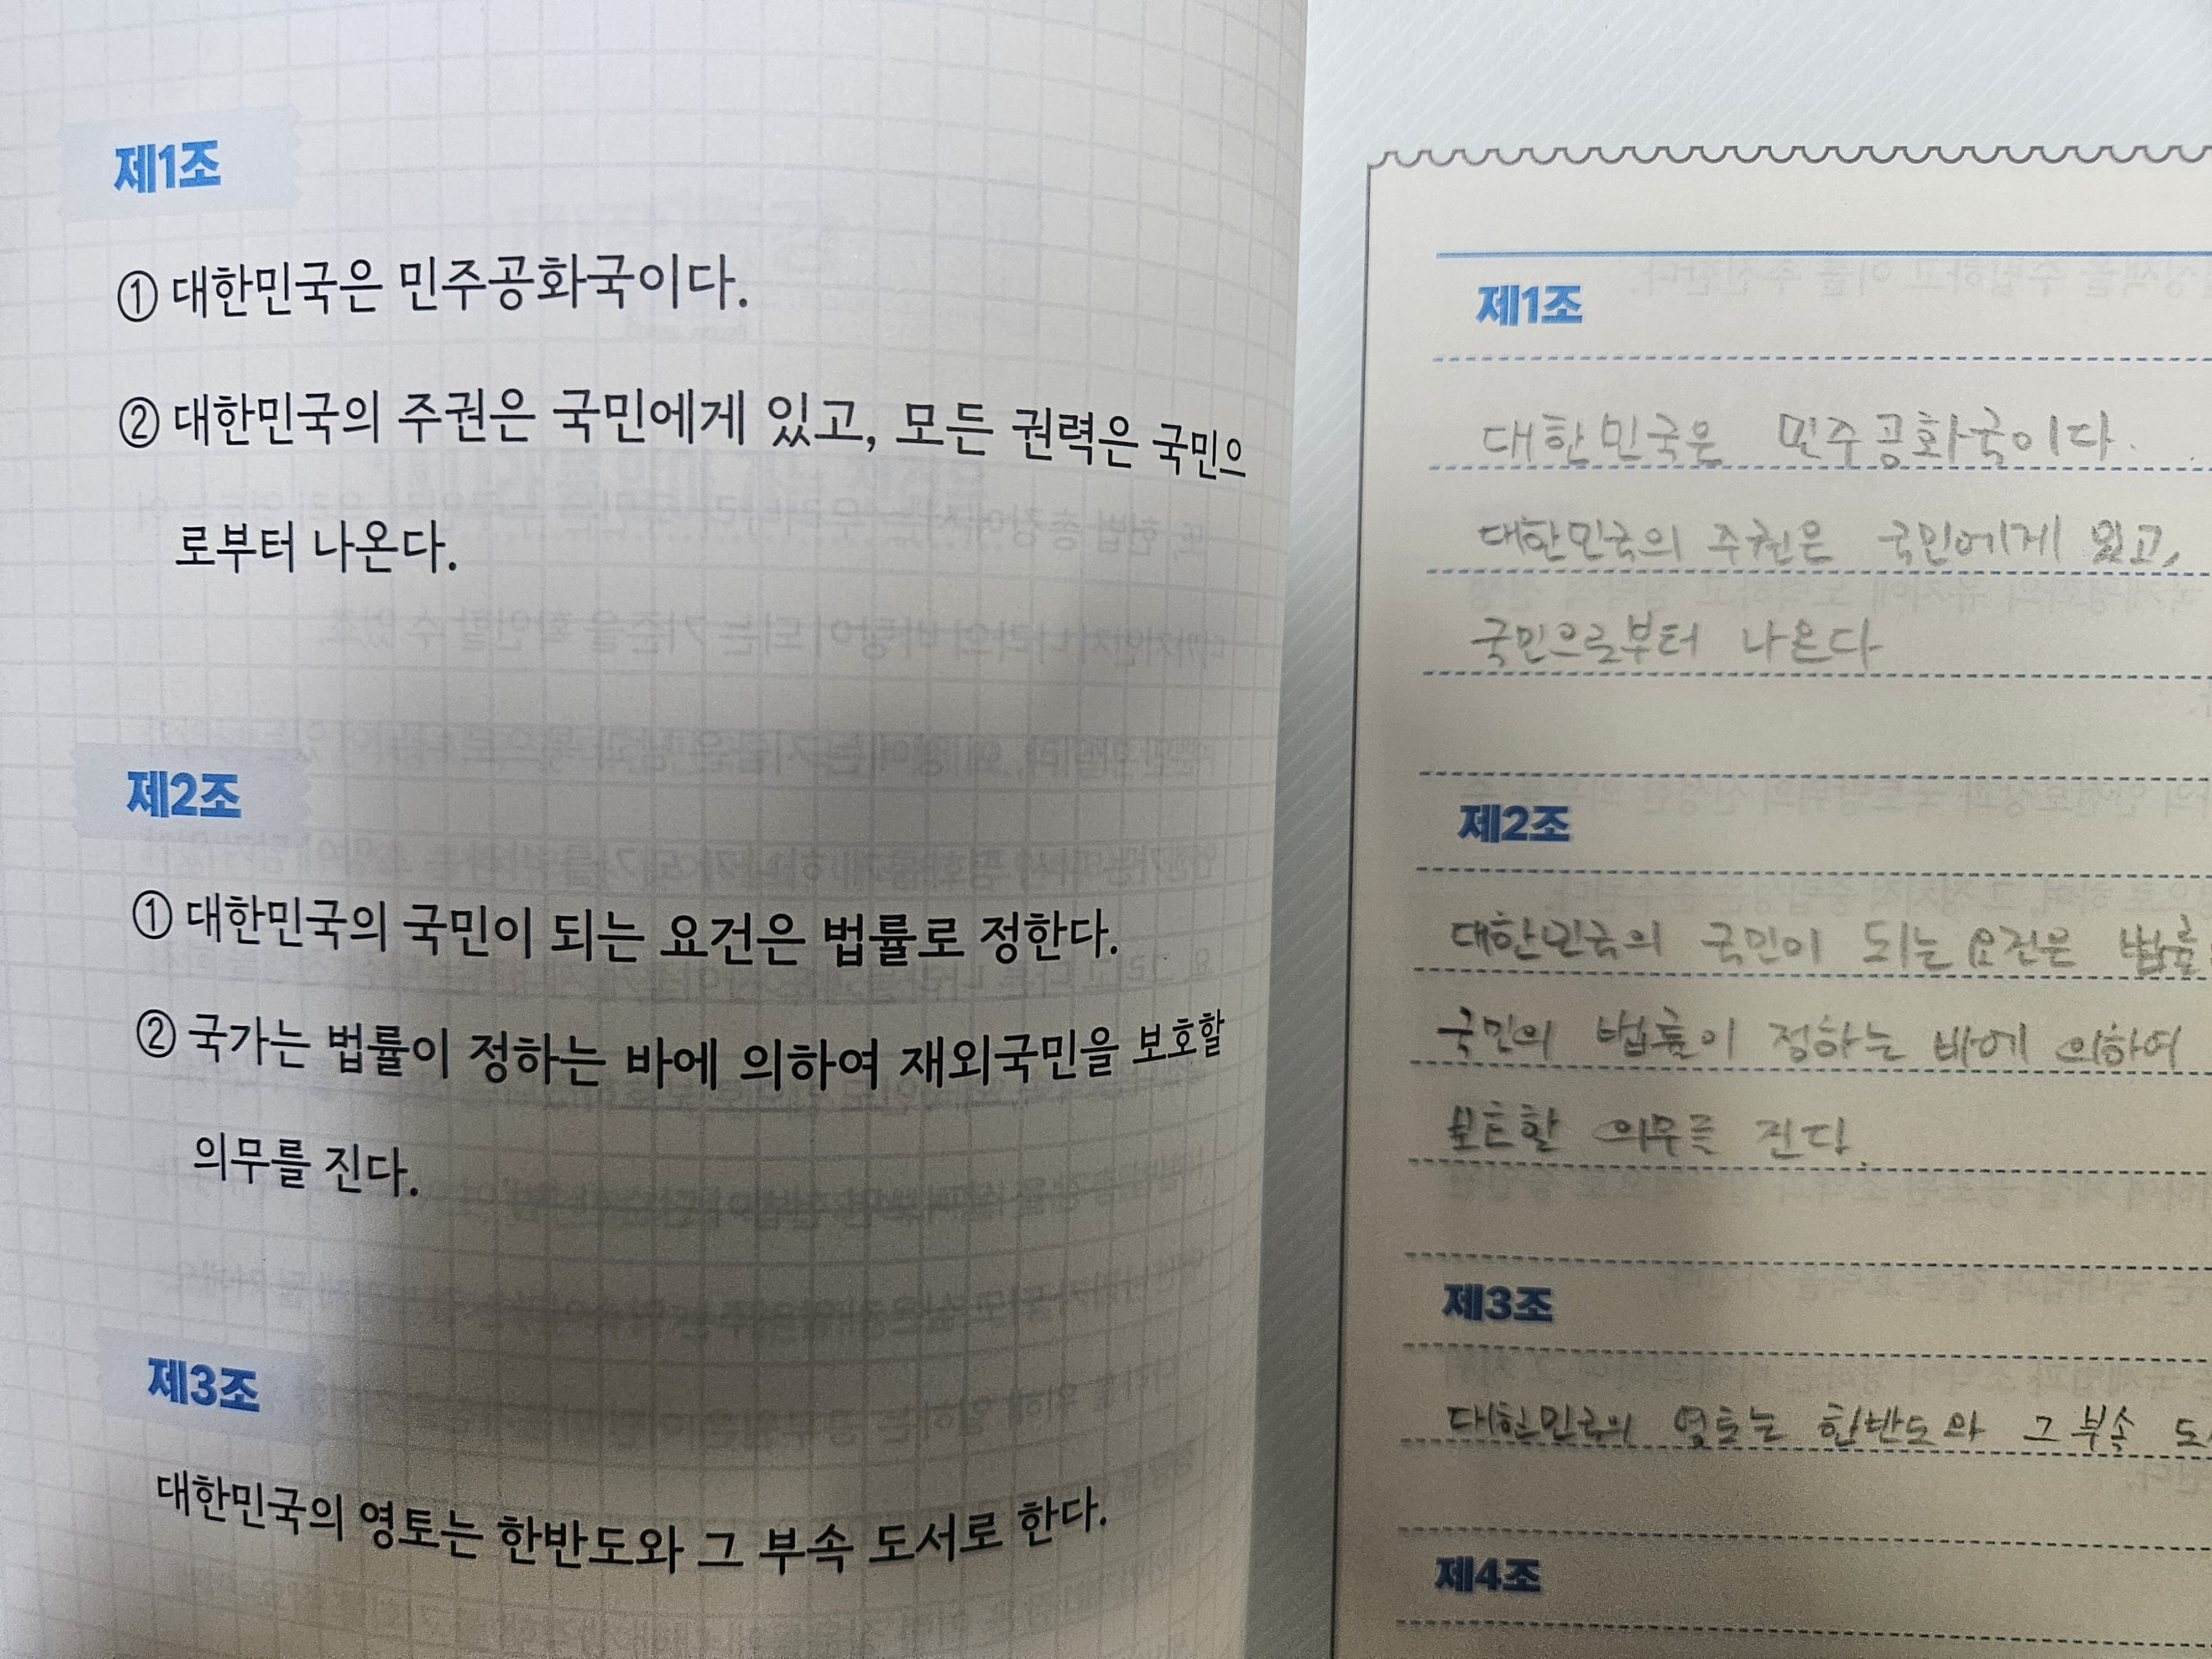 제1조
① 대한민국은 민주공화국이다.
② 대한민국의 주권은 국민에게 있고, 모든 권력은 국민으
로부터 나온다.
제2조
① 대한민국의 국민이 되는 요건은 법률로 정한다.
② 국가는 법률이 정하는 바에 의하여 재외국민을 보호할
의무를 진다.
제3조
대한민국의 영토는 한반도와 그 부속 도서로 한다.
제1조
대한민국은 민주공화국이다.
대한민국의 주권은 국민에게 있고,
국민으로부터 나온다
제2조
대한민국의 국민이 되는 요건은 법률
국민의 법률이 정하는 바에 의하여
보호할 의무를 진다.
제3조
대한민국의 영토는 한반도와 그 부속 도
제4조